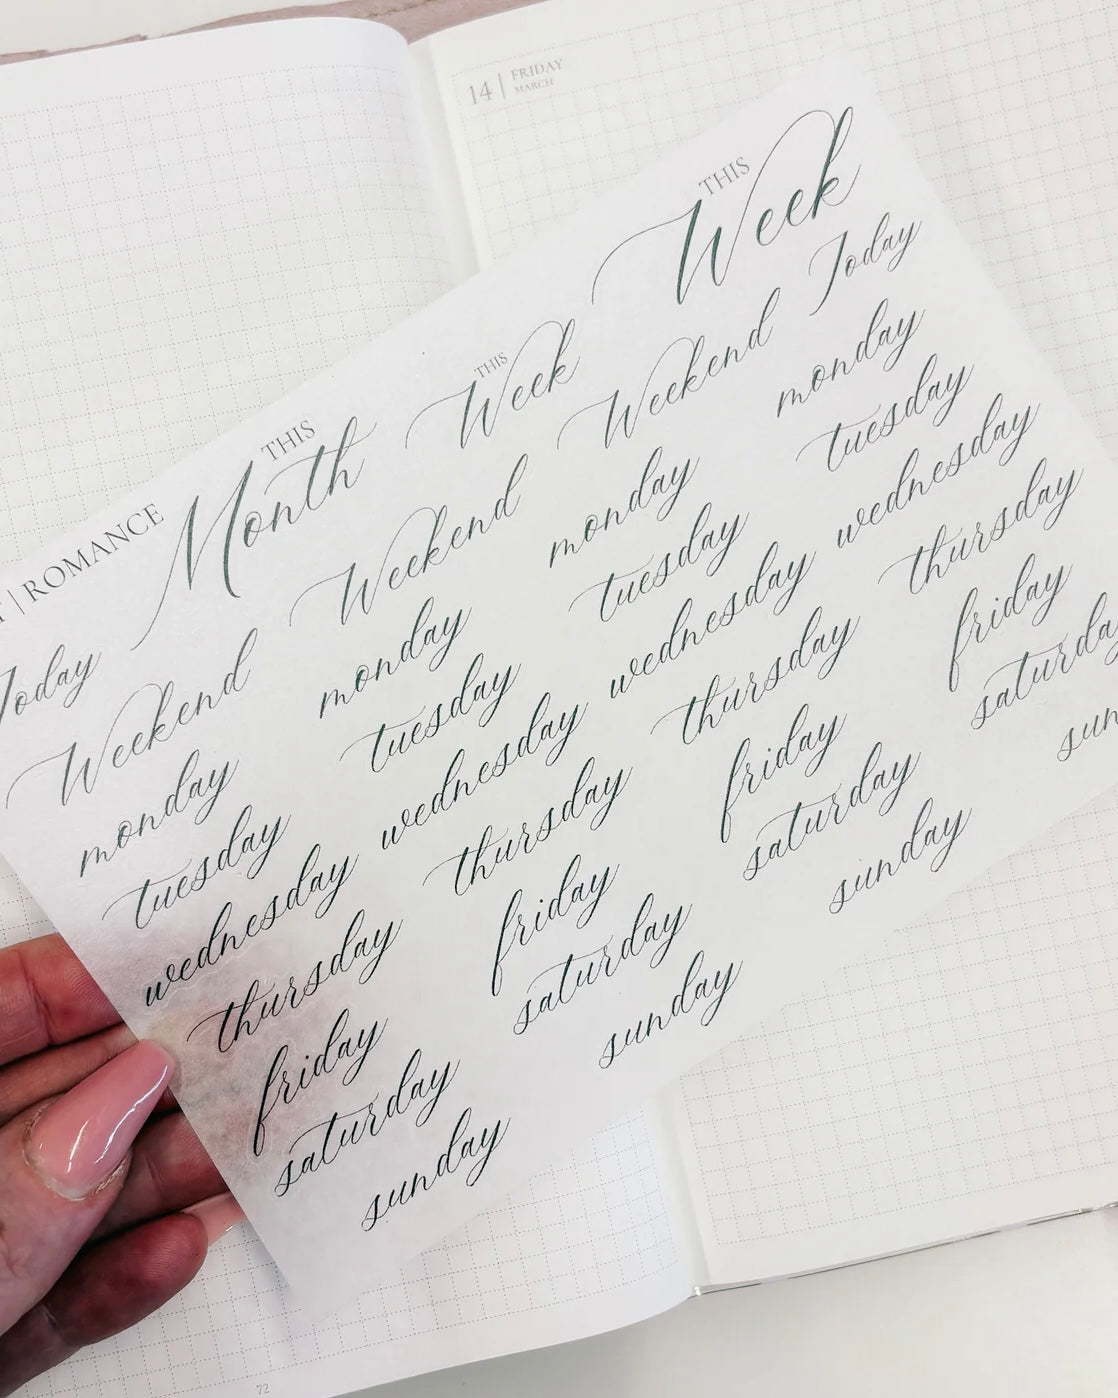 14 | FRIDAY
MARCH
THIS
Week
Today
THIS
Week
Weekend
monday
tuesday
wednesday
thursday
friday
saturday
sun
THIS
Month
Weekend
monday
tuesday
wednesday
thursday
friday
saturday
sunday
| ROMANCE
Today
Weekend
monday
tuesday
wednesday
thursday
friday
saturday
sunday
monday
tuesday
wednesday
thursday
friday
saturday
sunday
72